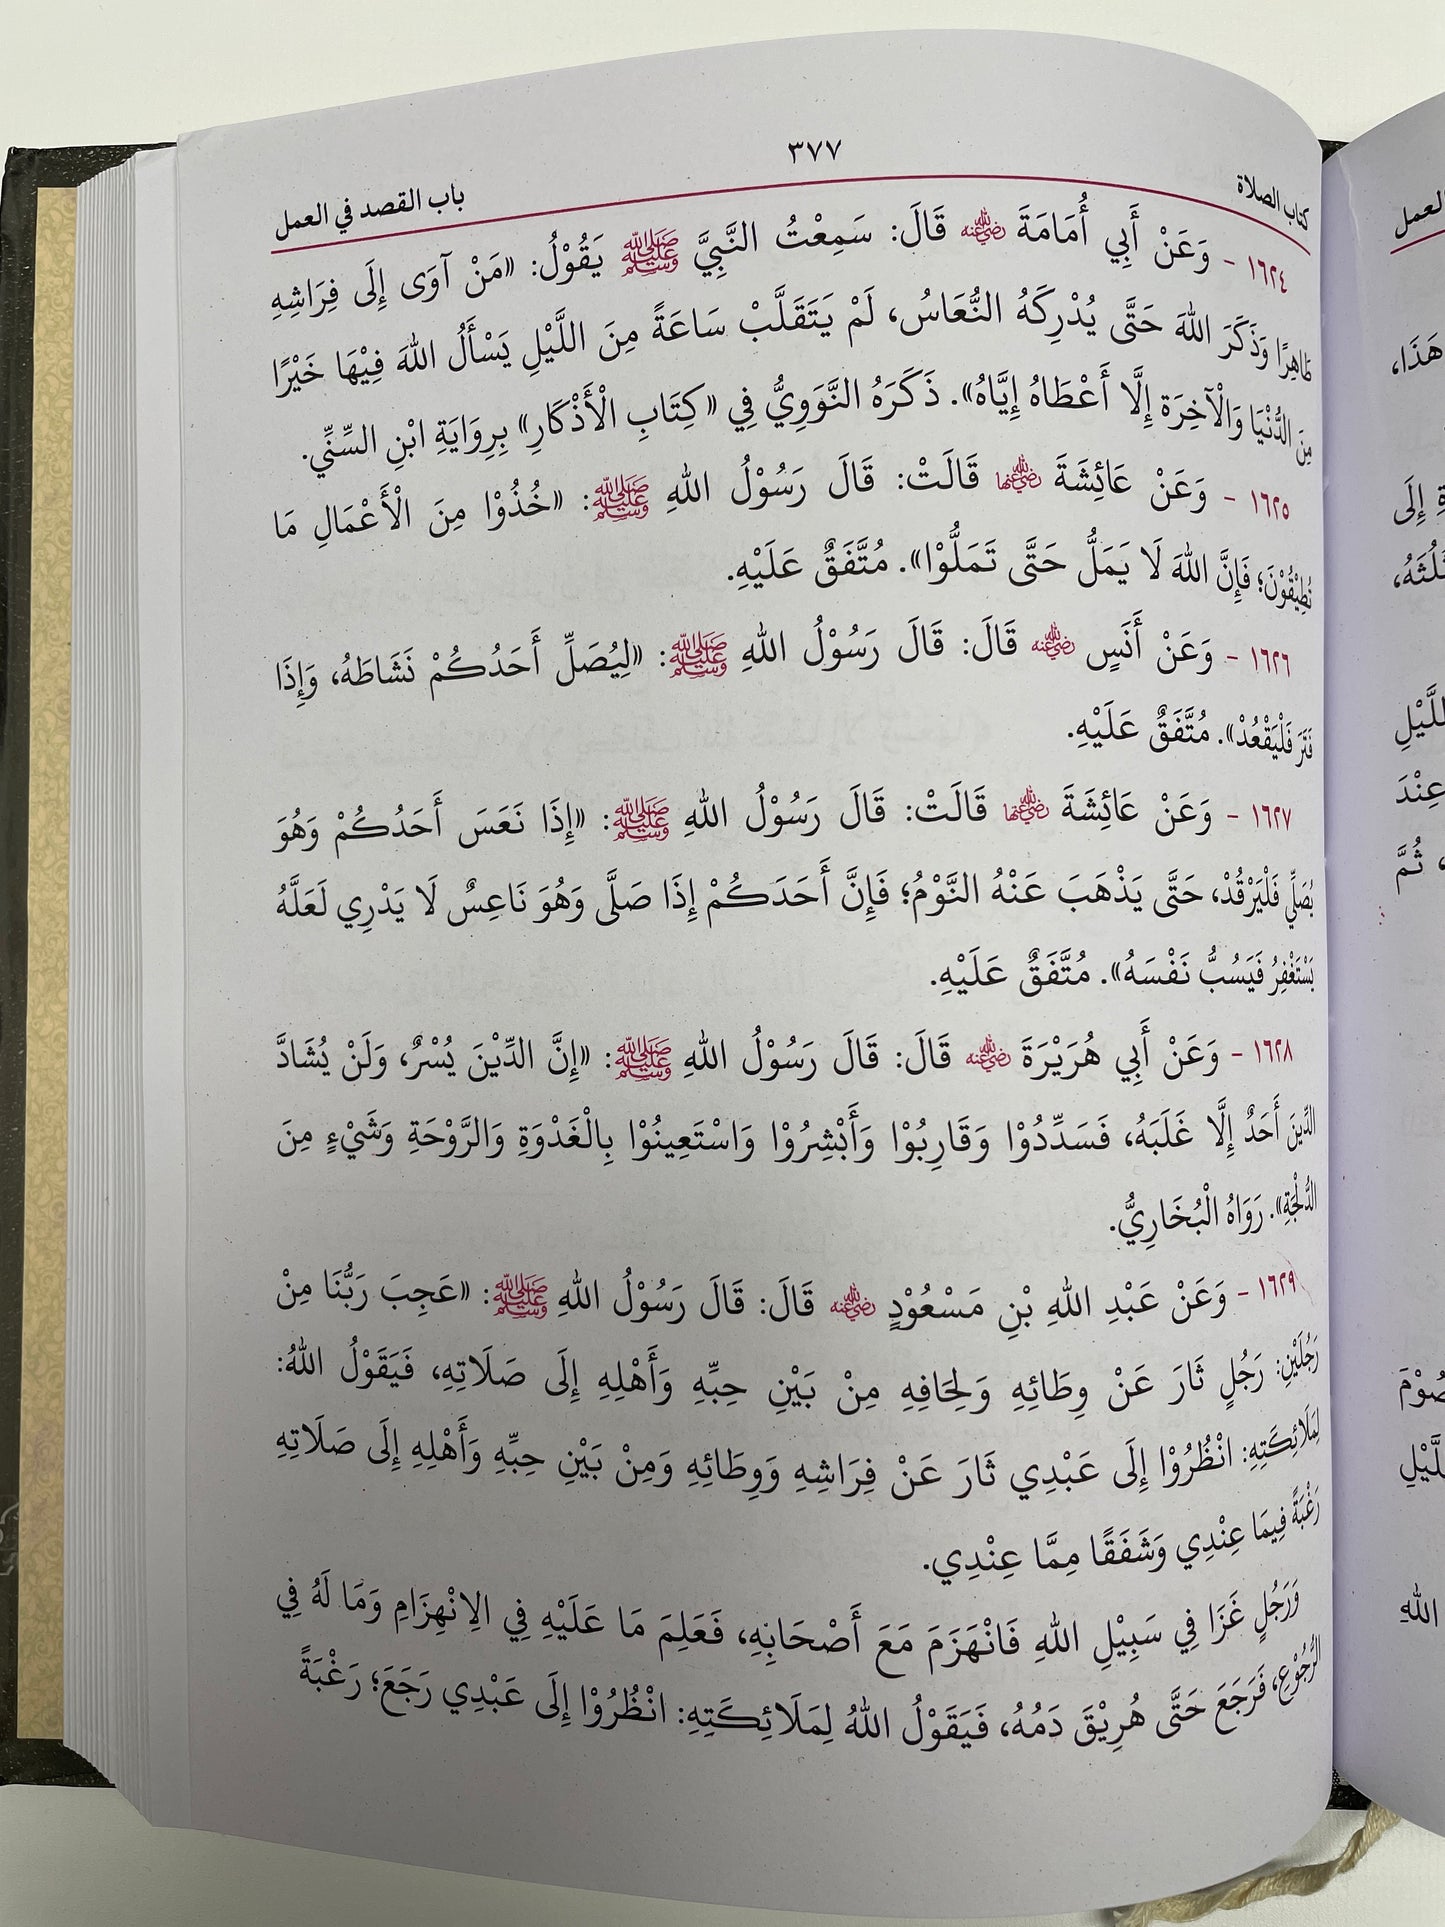 ٣٧٧
كتاب الصلاة
باب القصد في العمل
١٦٢٤ - وَعَنْ أَبِي أُمَامَةَ رضي الله عنه قَالَ: سَمِعْتُ النَّبِيَّ صلى الله عليه وسلم يَقُوْلُ: «مَنْ آوَى إِلَى فِرَاشِهِ
طَاهِرًا وَذَكَرَ اللهَ حَتَّى يُدْرِكَهُ النُّعَاسُ، لَمْ يَتَقَلَّبْ سَاعَةً مِنَ اللَّيْلِ يَسْأَلُ اللهَ فِيْهَا خَيْرًا
مِنَ الدُّنْيَا وَالْآخِرَةِ إِلَّا أَعْطَاهُ إِيَّاهُ». ذَكَرَهُ النَّوَوِيُّ فِي «كِتَابِ الْأَذْكَارِ» بِرِوَايَةِ ابْنِ السِّنِّي.
١٦٢٥ - وَعَنْ عَائِشَةَ رضي الله عنها قَالَتْ: قَالَ رَسُوْلُ اللهِ صلى الله عليه وسلم: «خُذُوْا مِنَ الْأَعْمَالِ مَا
تُطِيْقُوْنَ؛ فَإِنَّ اللهَ لَا يَمَلُّ حَتَّى تَمَلُّوْا». مُتَّفَقٌ عَلَيْهِ.
١٦٢٦ - وَعَنْ أَنَسٍ رضي الله عنه قَالَ: قَالَ رَسُوْلُ اللهِ صلى الله عليه وسلم: «لِيُصَلِّ أَحَدُكُمْ نَشَاطَهُ، وَإِذَا
فَتَرَ فَلْيَقْعُدْ». مُتَّفَقٌ عَلَيْهِ.
١٦٢٧ - وَعَنْ عَائِشَةَ رضي الله عنها قَالَتْ: قَالَ رَسُوْلُ اللهِ صلى الله عليه وسلم: «إِذَا نَعَسَ أَحَدُكُمْ وَهُوَ
يُصَلِّي فَلْيَرْقُدْ، حَتَّى يَذْهَبَ عَنْهُ النَّوْمُ؛ فَإِنَّ أَحَدَكُمْ إِذَا صَلَّى وَهُوَ نَاعِسٌ لَا يَدْرِي لَعَلَّهُ
يَسْتَغْفِرُ فَيَسُبُّ نَفْسَهُ». مُتَّفَقٌ عَلَيْهِ.
١٦٢٨ - وَعَنْ أَبِي هُرَيْرَةَ رضي الله عنه قَالَ: قَالَ رَسُوْلُ اللهِ صلى الله عليه وسلم: «إِنَّ الدِّيْنَ يُسْرٌ، وَلَنْ يُشَادَّ
الدِّينَ أَحَدٌ إِلَّا غَلَبَهُ، فَسَدِّدُوْا وَقَارِبُوْا وَأَبْشِرُوْا وَاسْتَعِينُوْا بِالْغَدْوَةِ وَالرَّوْحَةِ وَشَيْءٍ مِنَ
الدُّلْجَةِ». رَوَاهُ الْبُخَارِيُّ.
١٦٢٩ - وَعَنْ عَبْدِ اللهِ بْنِ مَسْعُوْدٍ رضي الله عنه قَالَ: قَالَ رَسُوْلُ اللهِ صلى الله عليه وسلم: «عَجِبَ رَبُّنَا مِنْ
رَجُلَيْنِ: رَجُلٍ ثَارَ عَنْ وِطَائِهِ وَلِحَافِهِ مِنْ بَيْنِ حِبِّهِ وَأَهْلِهِ إِلَى صَلَاتِهِ، فَيَقُوْلُ اللهُ:
لِمَلَائِكَتِهِ: انْظُرُوْا إِلَى عَبْدِي ثَارَ عَنْ فِرَاشِهِ وَوِطَائِهِ وَمِنْ بَيْنِ حِبِّهِ وَأَهْلِهِ إِلَى صَلَاتِهِ
رَغْبَةً فِيمَا عِنْدِي وَشَفَقًا مِمَّا عِنْدِي.
وَرَجُلٍ غَزَا فِي سَبِيْلِ اللهِ فَانْهَزَمَ مَعَ أَصْحَابِهِ، فَعَلِمَ مَا عَلَيْهِ فِي الِانْهِزَامِ وَمَا لَهُ فِي
الرُّجُوْعِ، فَرَجَعَ حَتَّى هُرِيْقَ دَمُهُ، فَيَقُوْلُ اللهُ لِمَلَائِكَتِهِ: انْظُرُوْا إِلَى عَبْدِي رَجَعَ؛ رَغْبَةً
هَذَا،
إِلَى
اللَّيْلِ
عِنْدَ
، ثُمَّ
اللهِ